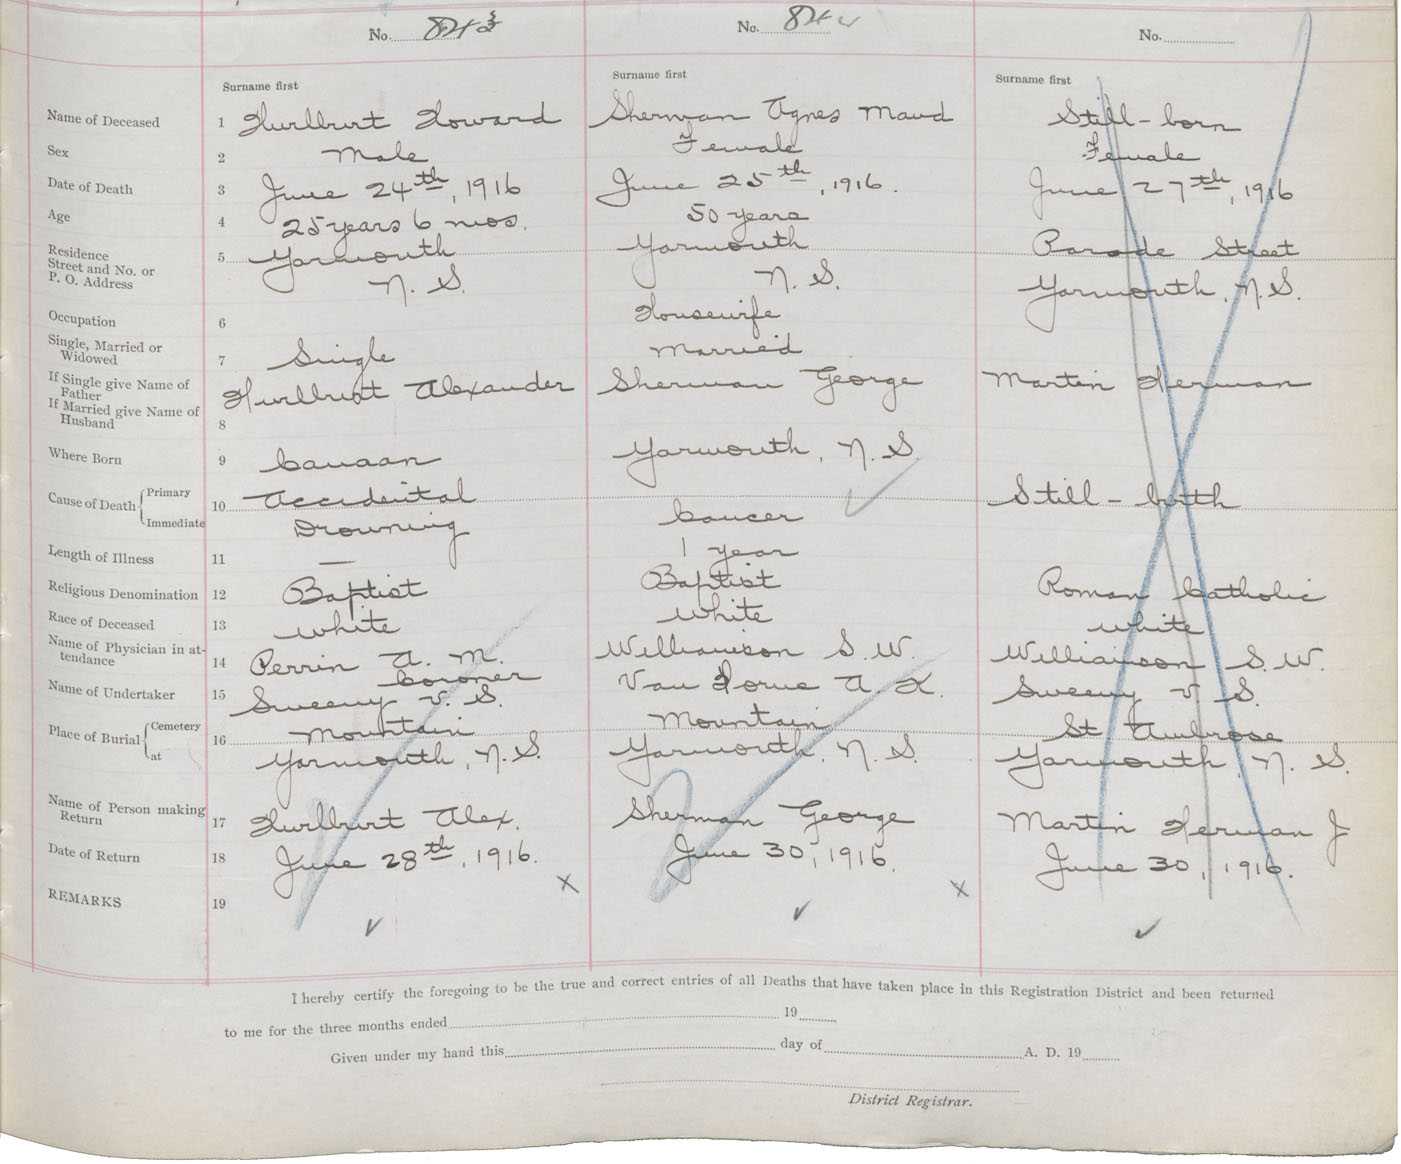 No. 843 No. 84 No.
Surname first Surname first Surname first
Name of Deceased 1 Hurlburt Howard Sherman Agnes Maud Still-born
Sex 2 Male Female Female
Date of Death 3 June 24th, 1916 June 25th, 1916. June 27th, 1916
Age 4 25 years 6 mos. 50 years
Residence
Street and No. or
P. O. Address
5 Yarmouth Yarmouth Parade Street
N. S. N. S. Yarmouth, N.S.
Occupation 6 Housewife
Single, Married or
Widowed
7 Single Married
If Single give Name of
Father
If Married give Name of
Husband
8 Hurlburt Alexander Sherman George Martin Herman
Where Born 9 Canaan Yarmouth, N. S.
Cause of Death { Primary
Immediate
10 Accidental Still-birth
Drowning Cancer
Length of Illness 11 — 1 year
Religious Denomination 12 Baptist Baptist Roman Catholic
Race of Deceased 13 White White White
Name of Physician in at-
tendance
14 Perrin A. M. Williamson S. W. Williamson S. W.
Coroner
Name of Undertaker 15 Sweeny V. S. Van Horne A. K. Sweeny V. S.
Place of Burial { Cemetery
at
16 Mountain Mountain St Ambrose
Yarmouth, N.S. Yarmouth, N. S. Yarmouth, N. S.
Name of Person making
Return
17 Hurlburt Alex. Sherman George Martin Herman J
Date of Return 18 June 28th, 1916. June 30, 1916. June 30, 1916.
REMARKS 19
I hereby certify the foregoing to be the true and correct entries of all Deaths that have taken place in this Registration District and been returned
to me for the three months ended 19
Given under my hand this day of A. D. 19
District Registrar.